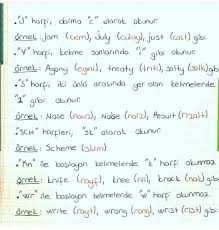 • "J" harfi, daima "c" olarak okunur.
örnek: Jam (cem), July (culay), just (cast) gibi
• "Y" harfi, kelime sonlarında "i" gibi okunur.
örnek: Agony (egıni), treaty (triti), salty (solti) gibi
• "S" harfi, iki ünlü arasında yer alan kelimelerde
"z" gibi okunur.
örnek: Nose (nouz), Noise (noiz), Result (rizalt)
• "SCH" harfleri, "sk" olarak okunur.
örnek: Scheme (skim)
• "Kn" ile başlayan kelimelerde "k" harfi okunmaz.
örnek: knife (nayf), knee (nii), knock (nak) gibi
• "wr" ile başlayan kelimelerde "w" harfi okunmaz.
örnek: write (rayt), wrong (rong), wrist (rist) gibi